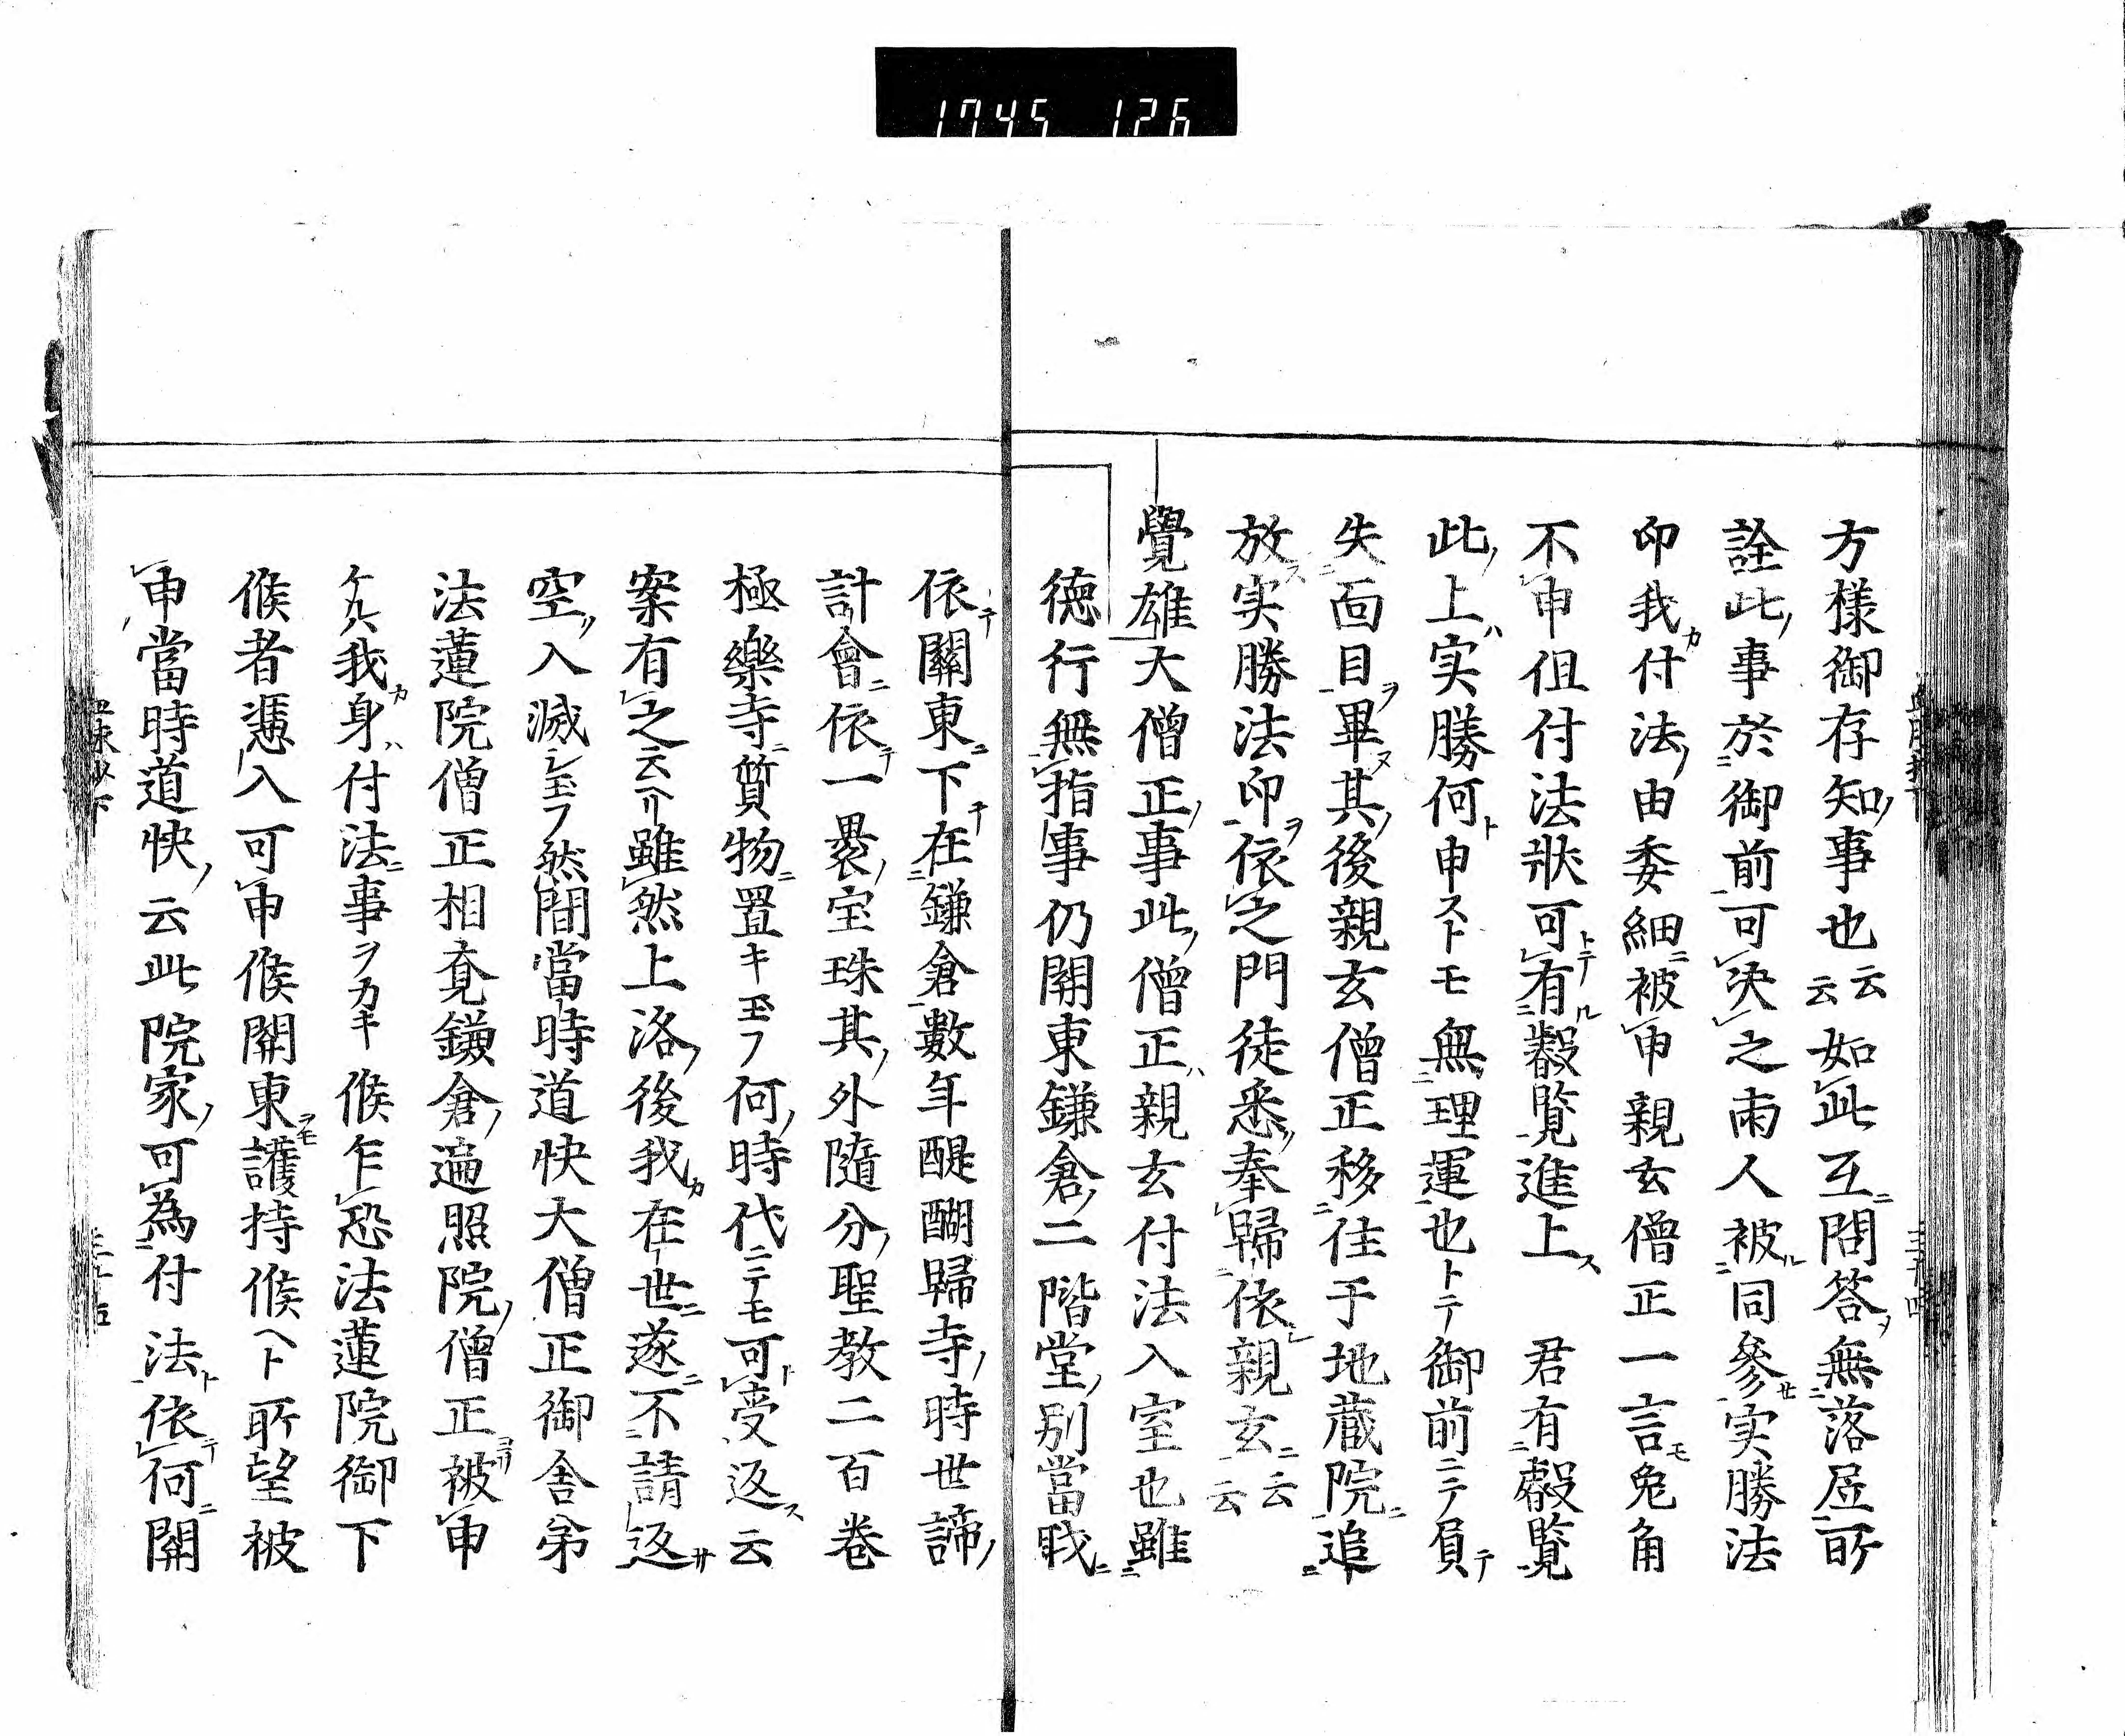 1745 126
方様御存知ノ事也云云如㆑此互ニ問答ヲ無落居所
詮此ノ事於御前可決之両人被同参実勝法
印我カ付法ノ由委細被申親玄僧正一言モ兎角
不申但付法状可有トテ叡覧進上ス 君有叡覧
此ノ上ハ実勝何ト申ストモ無理運也トテ御前ニテ負テ
失面目ヲ畢ヌ其ノ後親玄僧正移住于地蔵院追
放ス実勝法印ヲ依之門徒悉ク奉帰依シ親玄ニ云云
覺雄大僧正ノ事此ノ僧正ハ親玄付法入室也雖
徳行無指事仍関東鎌倉ノ二階堂ノ別當職ニ
依テ關東ニ下テ在鎌倉數年醍醐歸寺ノ時世諦ノ
計會ニ依テ一裹ノ宝珠其ノ外隨分ノ聖教二百巻
極樂寺ニ質物ニ置キ玉フ何ノ時代ニテモ可ト受返ス云
案有之云ヘリ雖然上洛ノ後我カ在世ニ遂ニ不請返サ
空ク入滅シ玉フ然間當時道快大僧正御舎弟
法蓮院僧正相副鎌倉ノ遍照院ノ僧正被申
ケルハ我カ身ハ付法ニ事ヲカキ候乍恐法蓮院御下
候者憑入可申候関東ヲモ護持候ヘト所望被
申當時道快ノ云此院家ノ可為付法ト依テ何ニ関